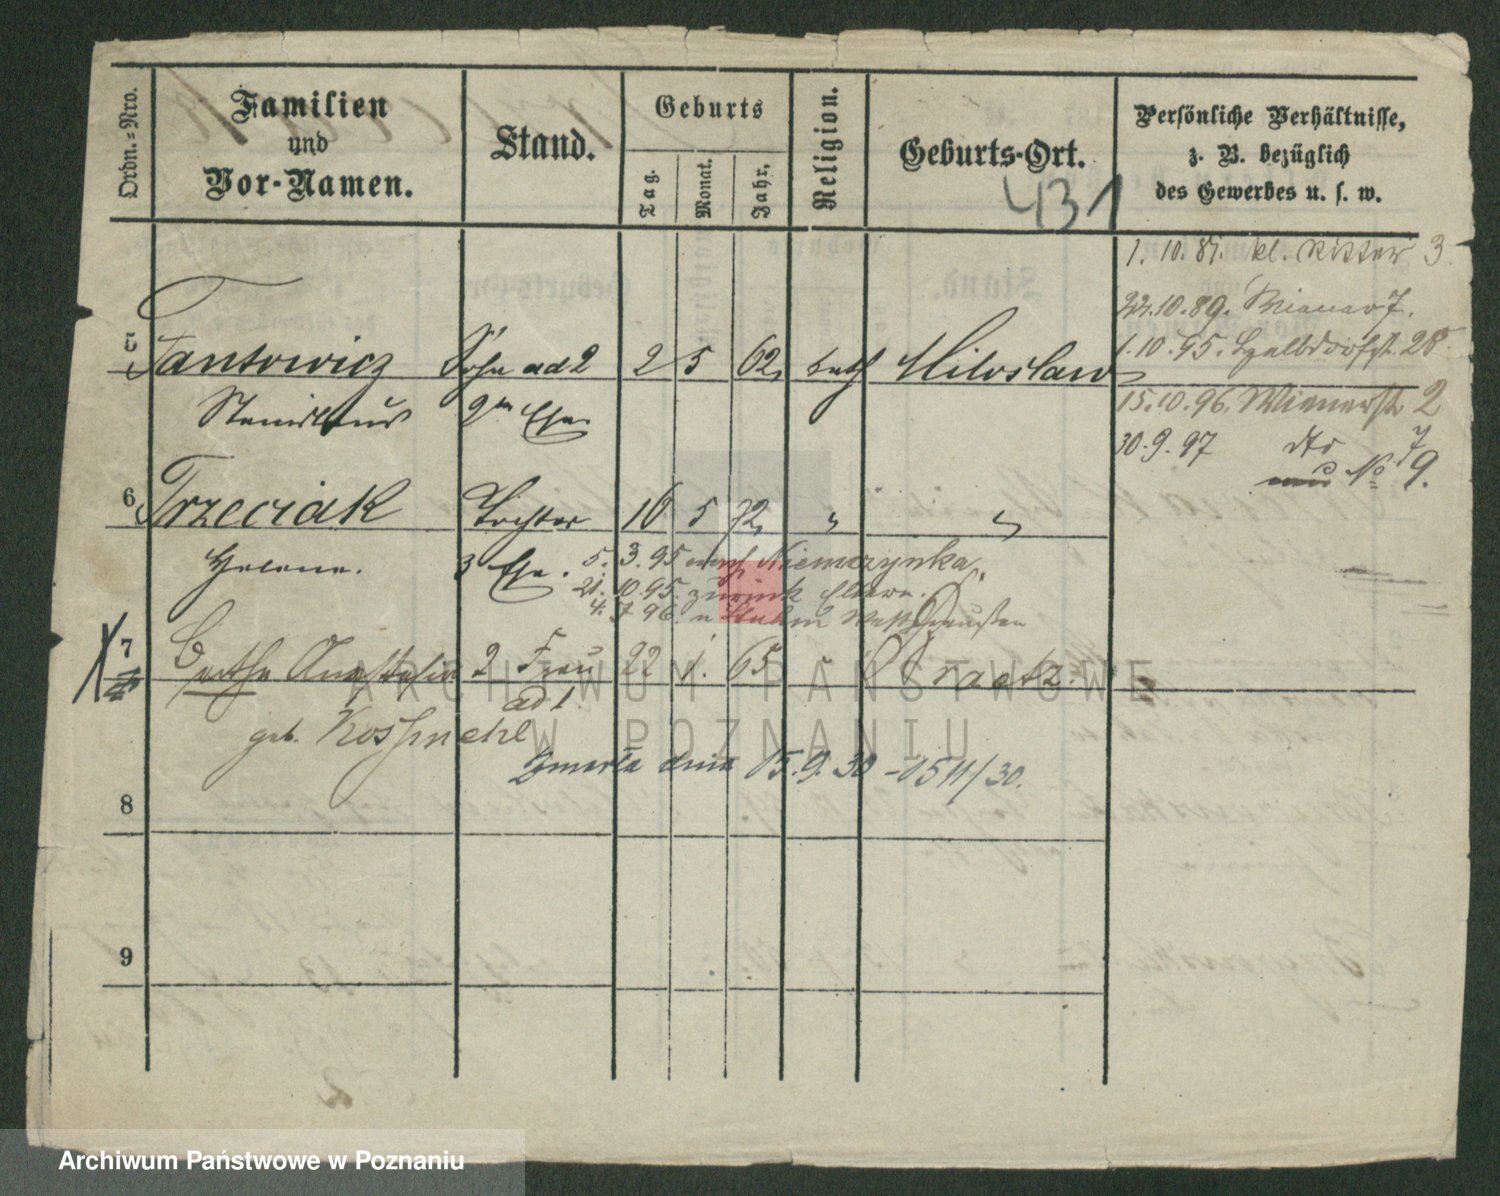 Ordn.=Nro.
Familien
und
Vor-Namen.
Stand.
Geburts
Tag.
Monat.
Jahr.
Religion.
Geburts-Ort.
Persönliche Verhältnisse,
z. B. bezüglich
des Gewerbes u. s. w.
431
1. 10. 81. kl. Ritter 3
22.10.89. Wiener 7.
1.10.95. 28
15.10.96. Wienerstr 2
30.9.97 dto 7
No 9.
5
Tantowicz Sohn ad 2 2 5 62 kath Miloslaw
Stanislaus 2ter Ehe
6 Trzeciak Tochter 16 5 72 " "
Helene. 3 Ehe.
5. 3.95 nach Niemczynka.
21. 10.95. zurück Eltern.
4. 7 96. n Stuhm Westpreußen
7 Bertha Anastasia 2 Frau 22 1. 65 Kraatz.
ad 1.
geb. Koschmehl
Zmarła dnia 15.9.30 - 1511/30.
8
9
ARCHIWUM PAŃSTWOWE
W POZNANIU
Archiwum Państwowe w Poznaniu